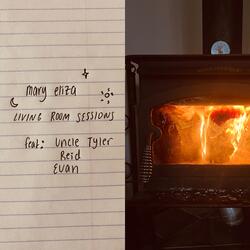 mary eliza
LIVING ROOM SESSIONS
feat: Uncle Tyler
Reid
Evan